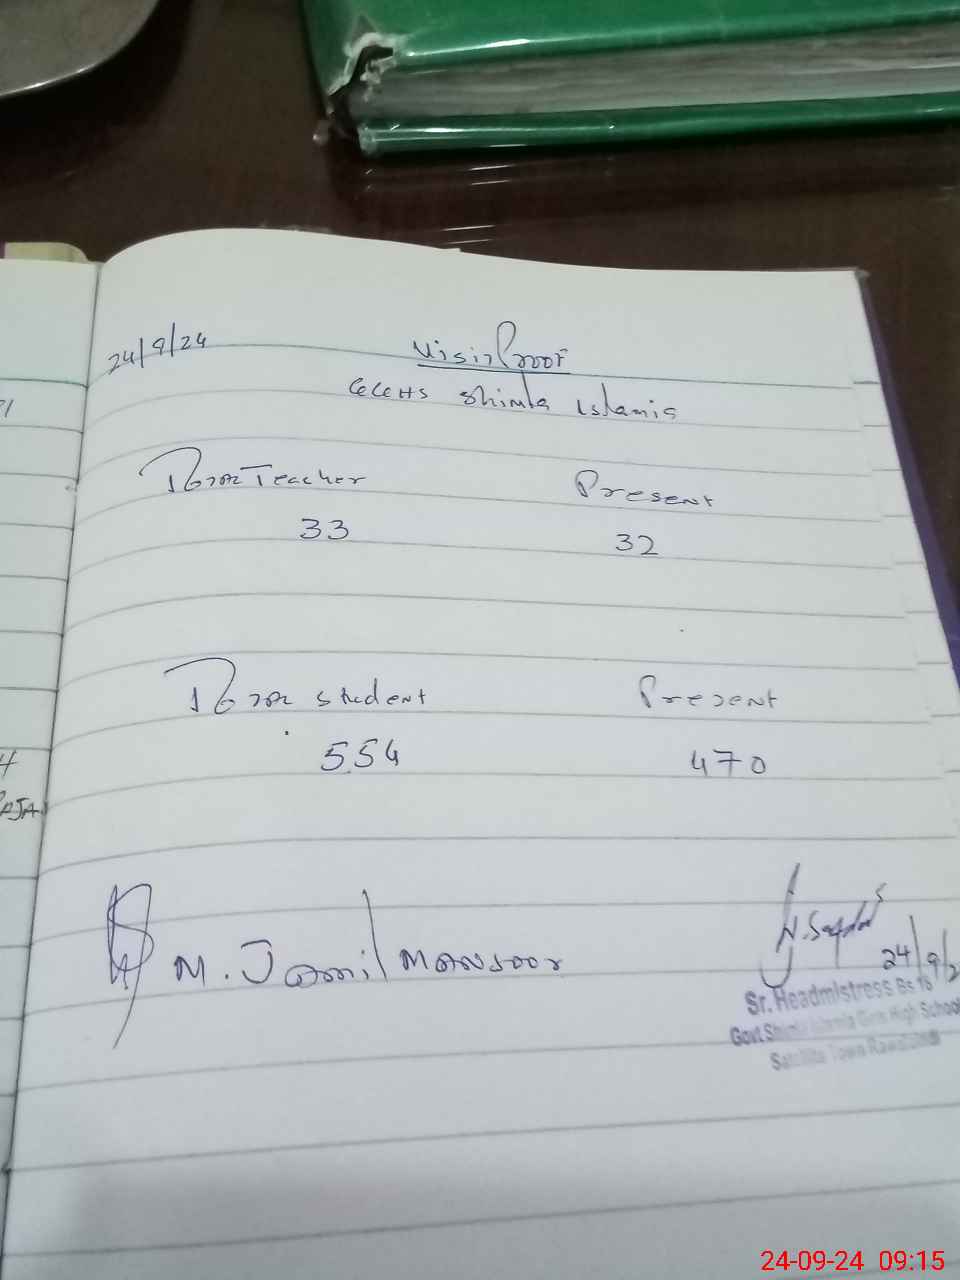 24/9/24
Visit Proof
GGHS Shimla Islamia
Total Teacher Present
33 32
Total student Present
554 470
M. Jamil Mansoor
24/9/2
Sr. Headmistress Bs 18
Govt. Shimla Islamia Girls High School
Satellite Town Rawalpindi
24-09-24 09:15